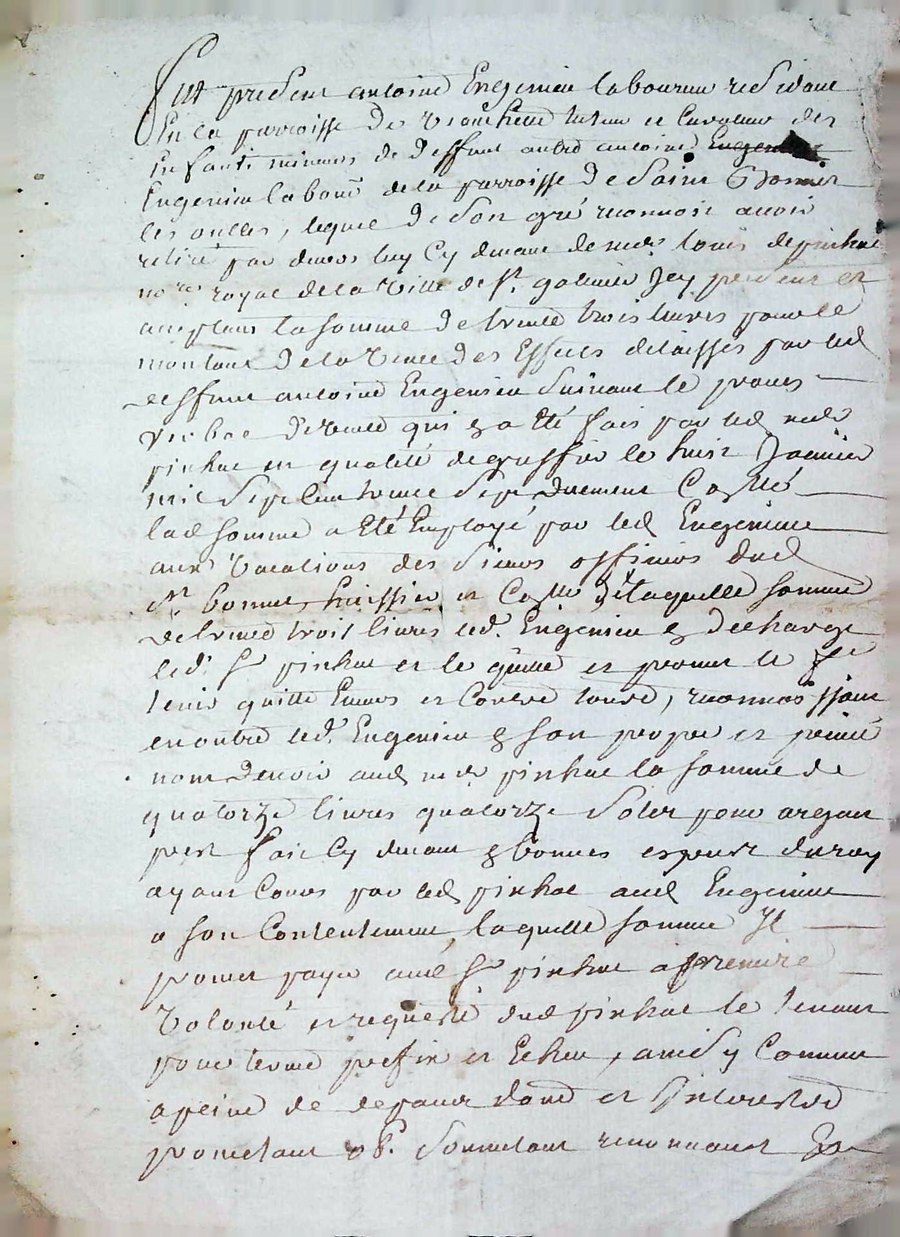 fut present antoine Engenieu laboureur residant
En la parroisse de tuteur et curateur des
Enfants mineurs de deffunt autre antoine
Engenieu labour de la parroisse de Saint Bonnet
les oulles, lequel de Son gré reconnoit avoir
retiré par devers luy Cy devant de me louis de pinhac
nore royal de la Ville de st galmier Icy present et
aceptant la somme de trente trois livres pour le
montant de la Vente des Effects delaissés par led
deffunt antoine Engenieu Suivant le proces
Verbal de Vente qui En a Eté fait par led me
pinhac en qualité de greffier le huit Janvier
mil Sept Cent trente Sept duement Collé
lad somme a Eté Employé par led Engenieu
aux Vacations des Sieurs officiers dud
st bonnet, huissier et Colle De laquelle somme
de trente troit livres led. Engenieu En decharge
led. Sr pinhac et le quitte et promet le fe
tenir quitte Envers et Contre toutes, reconnoissant
en outre led. Engenieu En son propre et privé
nom devoir aud me pinhac la somme de
quatorze livres quatorze Solz pour argent
prest fait Cy devant En bonnes especes du roy
ayant Cours par led pinhac aud Engenieu
a son Contentement, laquelle somme Il
promet payer aud Sr pinhac a premire
Volonté et requeste dud pinhac le tenant
pour terme prefix et Echeu, ainsy Comme
a peine de depans dom et Interestz
prometant ob. Soumetant renonceant